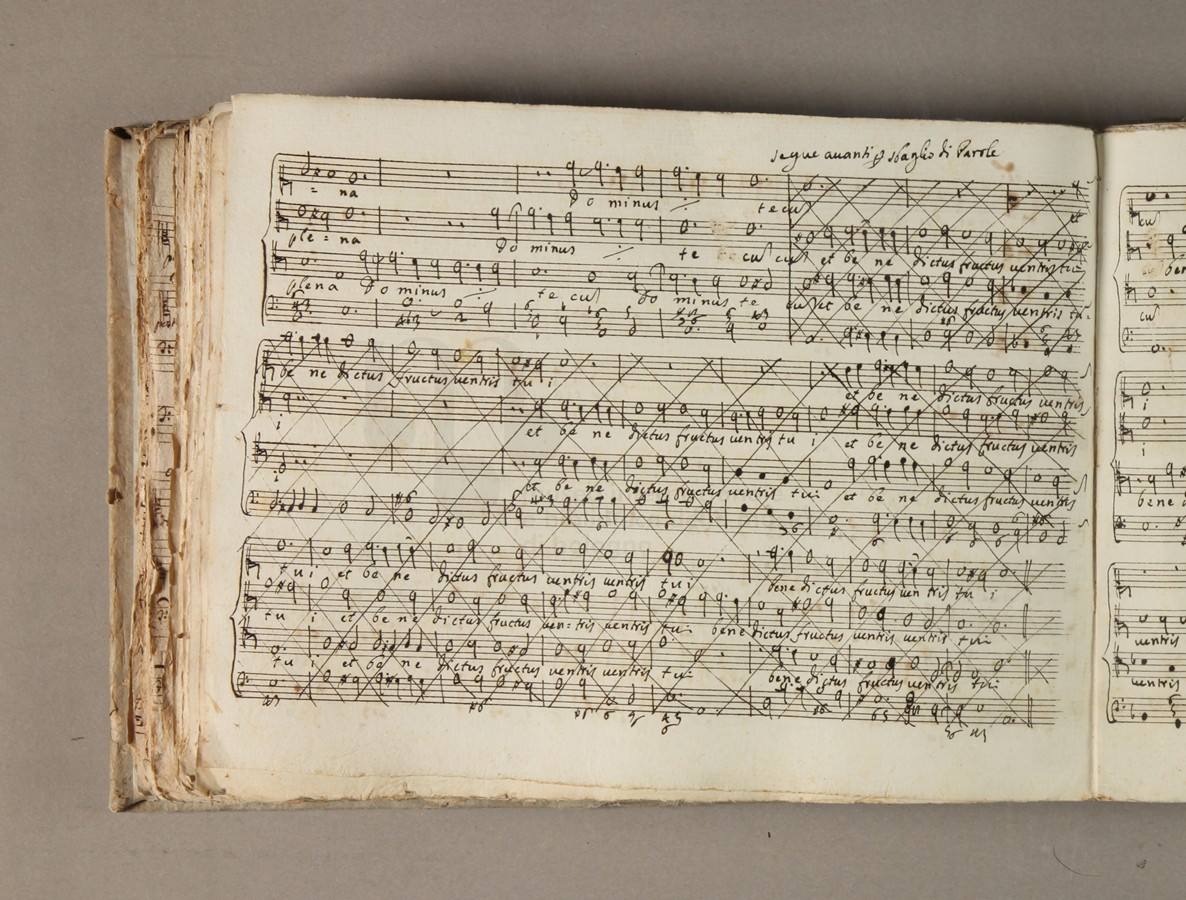 segue auanti p sbaglio di Parole
= na Do minus tecū
ple = na Do minus te cū cū et be ne dictus fructus uentris tu
plena Do minus te cū Do minus te cū et be ne dictus fructus uentris tu
be ne dictus fructus uentris tu i et be ne dictus fructus uentris
i et be ne dictus fructus uentris tu i et be ne dictus fructus uentris
i et be ne dictus fructus uentris tui et be ne dictus fructus uentris
tui et be ne dictus fructus uentris uentris tui bene dictus fructus uen tris tu i
tu i et be ne dictus fructus uen=tris uentris tui bene dictus fructus uentris uentris tui
tu i et be ne dictus fructus uentris uentris tui bene dictus fructus uentris tui
cū
ben
cū
i
i
bene d
uentris
uentris